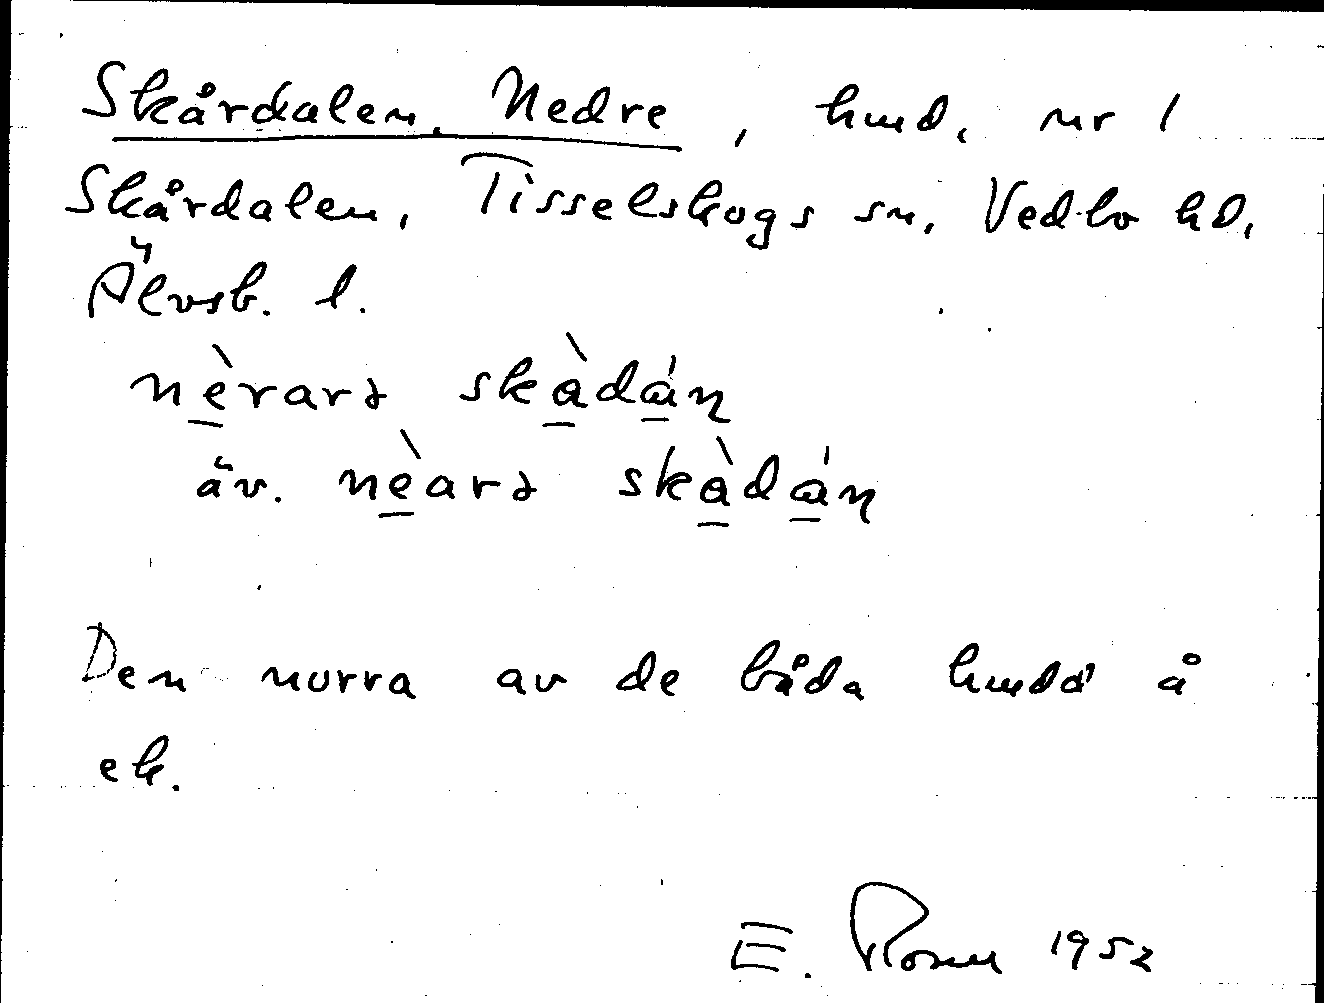 Skårdalen, Nedre, hmd, nr 1
Skårdalen, Tisselskogs sn, Vedbo hd,
Älvsb. l.
nèrarə skàdáɳ
äv. nèarə skàdáɳ
Den norra av de båda hmdd å
ek.
E. Rosen 1952